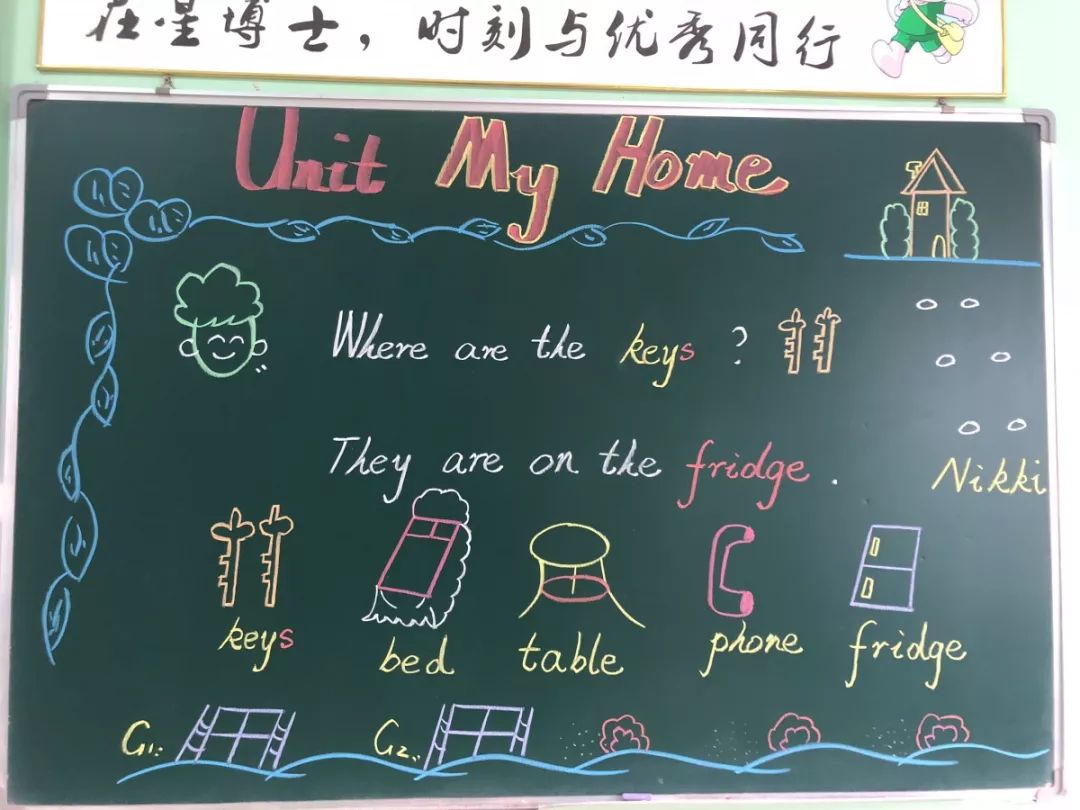 在星博士，时刻与优秀同行
Unit My Home
Where are the keys ?
They are on the fridge .
Nikki
keys bed table phone fridge
G1: G2: